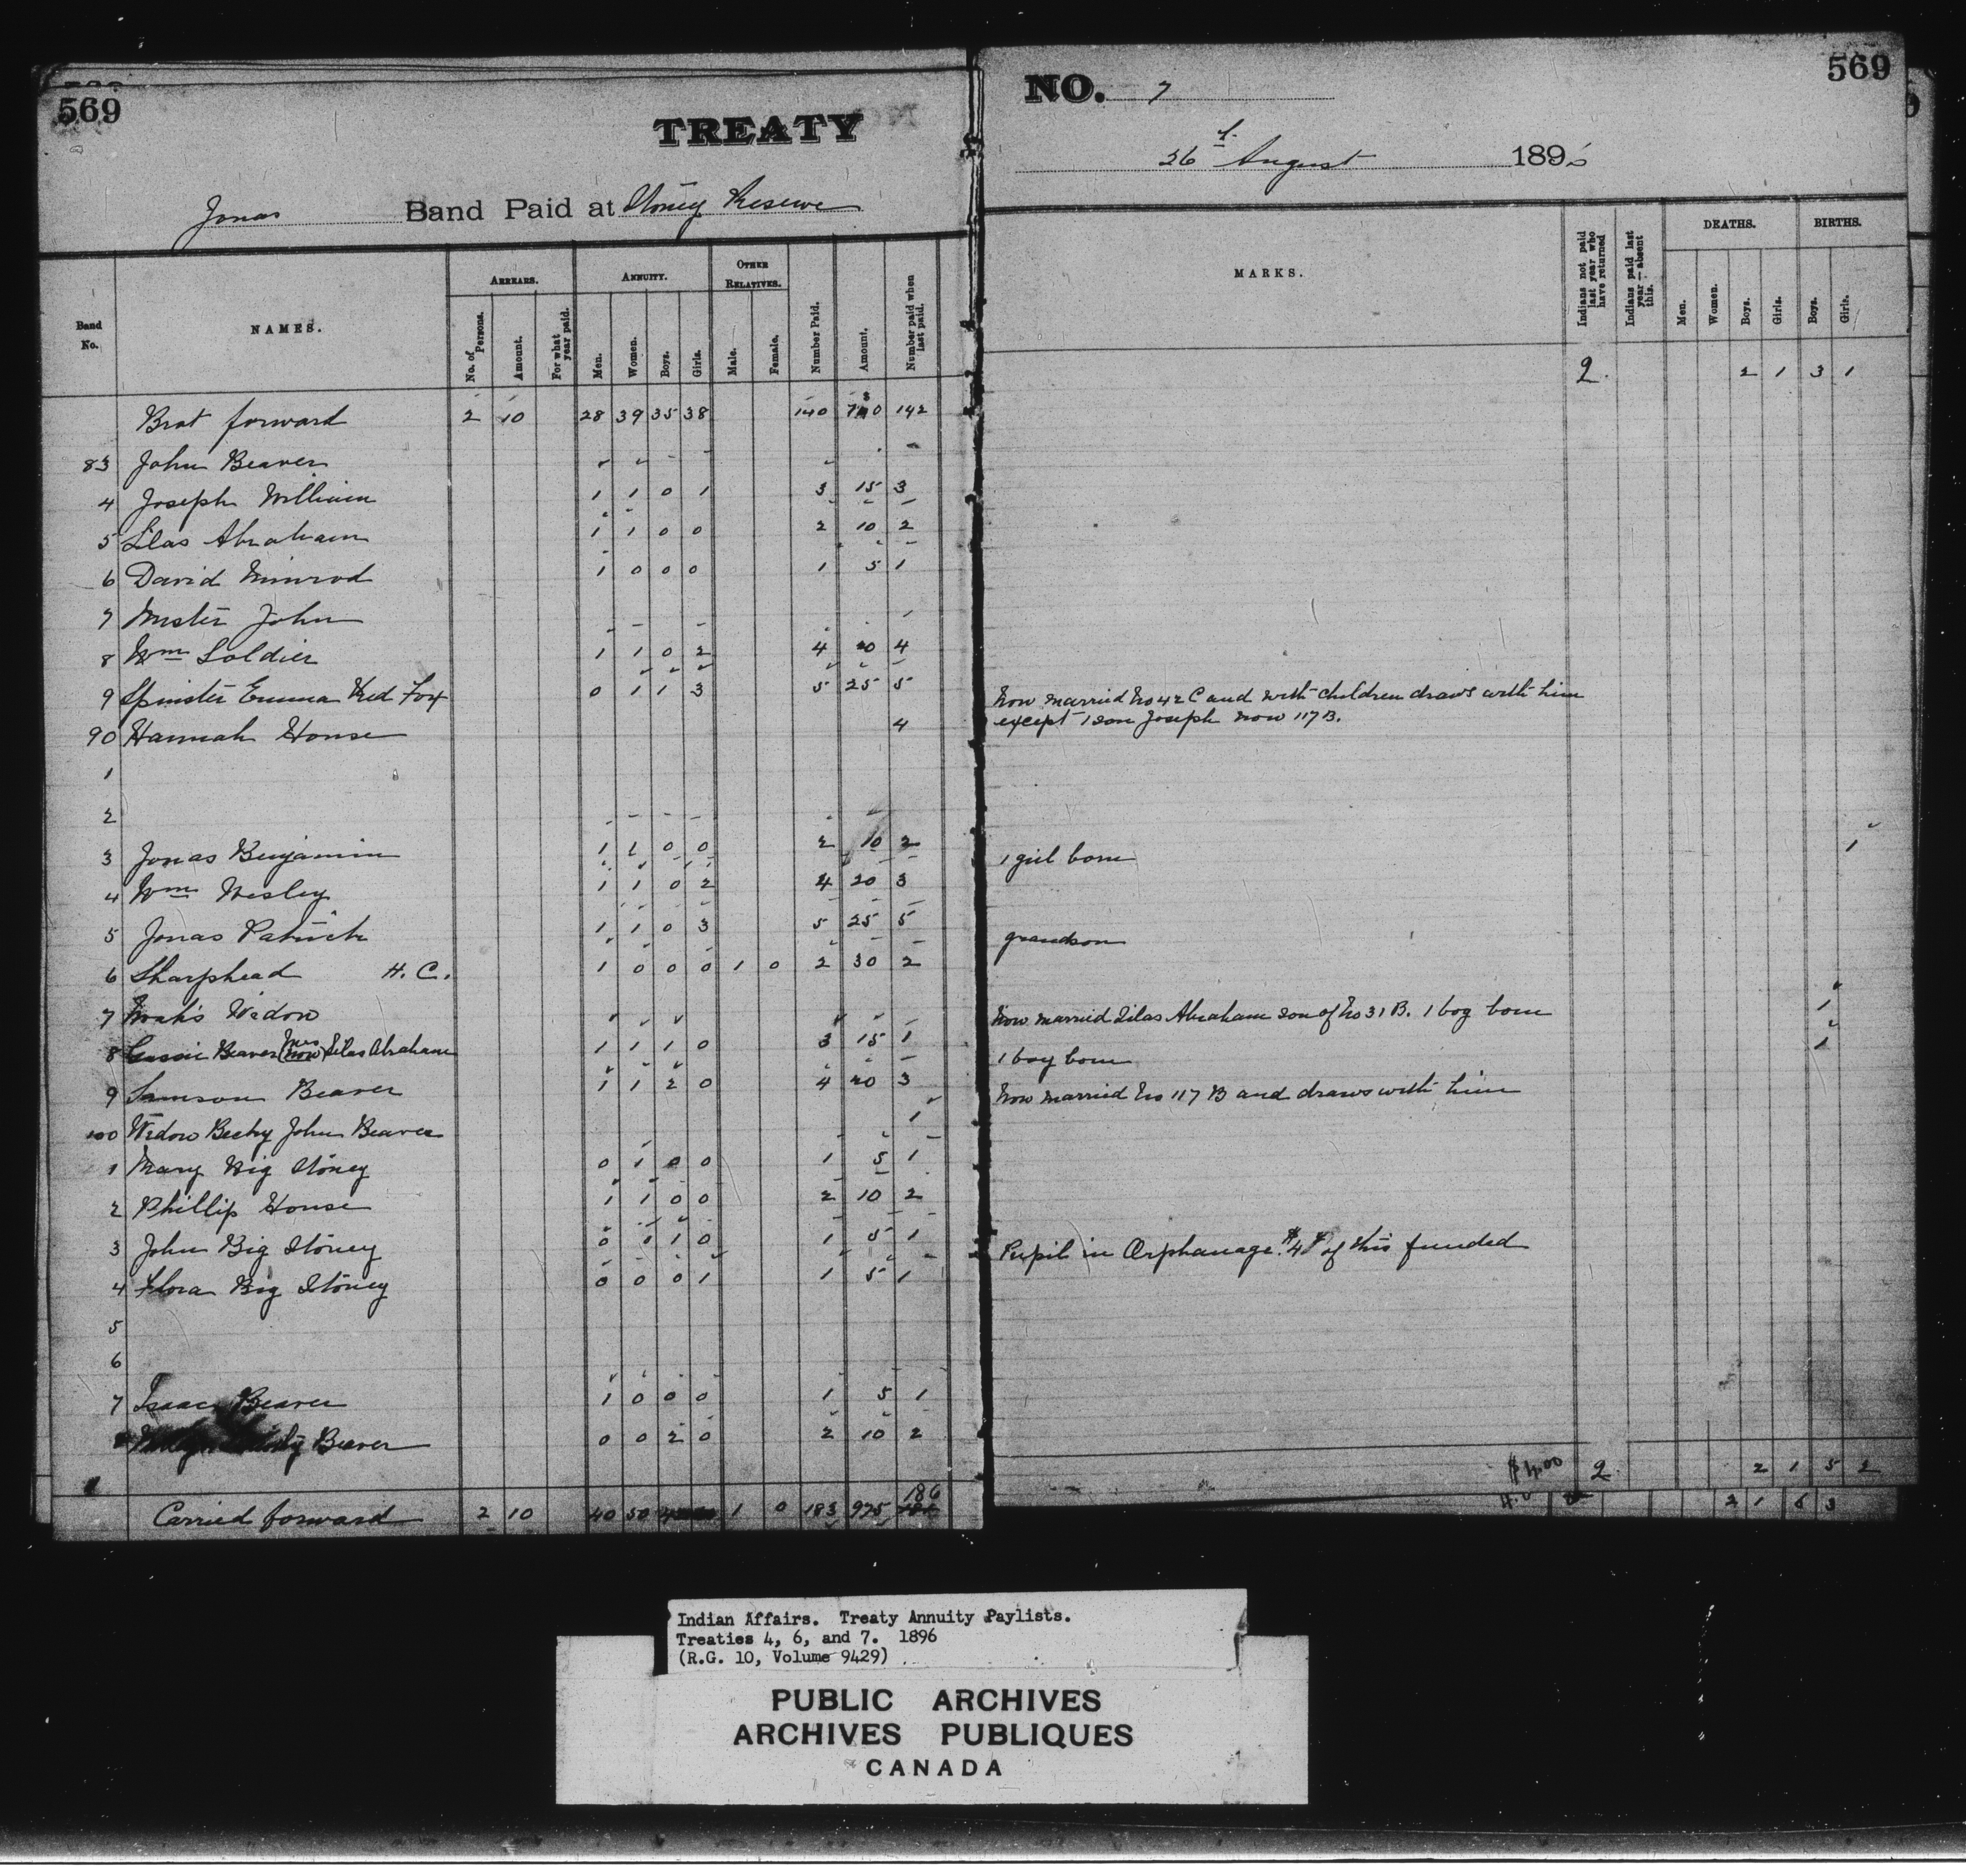 569
TREATY
Jonas Band Paid at Stoney Reserve
Band No. NAMES. ARREARS. ANNUITY. OTHER RELATIVES. Number Paid. Amount. Number paid when last paid.
No. of Persons. Amount. For what year paid. Men. Women. Boys. Girls. Male. Female.
Brot forward 2 10 28 39 35 38 140 730 142
83 John Beaver
4 Joseph William 1 1 0 1 3 15 3
5 Silas Abraham 1 1 0 0 2 10 2
6 David Nimrod 1 0 0 0 1 5 1
7 Mister John
8 Wm Soldier 1 1 0 2 4 20 4
9 Spinster Emma Red Fox 0 1 1 3 5 25 5
90 Hannah House 4
1
2
3 Jonas Benjamin 1 1 0 0 2 10 2
4 Wm Wesley 1 1 0 2 4 20 3
5 Jonas Patrick 1 1 0 3 5 25 5
6 Sharphead H. C. 1 0 0 0 1 0 2 30 2
7 Noah's Widow
8 Beaver (now Mrs) Silas Abraham 1 1 1 0 3 15 1
9 Samson Beaver 1 1 2 0 4 20 3
100 Widow Becky John Beaver 1
1 Mary Big Stoney 0 1 0 0 1 5 1
2 Phillip House 1 1 0 0 2 10 2
3 John Big Stoney 0 0 1 0 1 5 1
4 Flora Big Stoney 0 0 0 1 1 5 1
5
6
7 Isaac Beaver 1 0 0 0 1 5 1
Beaver 0 0 2 0 2 10 2
Carried forward 2 10 40 50 1 0 183 975 186
569
NO. 7
26th August 1896
MARKS. Indians not paid last year who have returned Indians paid last year—absent this. DEATHS. BIRTHS.
Men. Women. Boys. Girls. Boys. Girls.
2 2 1 3 1
Now married No 42 C and with children draws with him
except 1 son Joseph now 117 B.
1 girl born 1
grandson
Now married Silas Abraham son of No 31 B. 1 boy born 1
1 boy born 1
Now married No 117 B and draws with him
Pupil in Orphanage. $4 of this funded
$4.00 2 2 1 5 2
2 1 6 3
Indian Affairs. Treaty Annuity Paylists.
Treaties 4, 6, and 7. 1896
(R.G. 10, Volume 9429)
PUBLIC ARCHIVES
ARCHIVES PUBLIQUES
CANADA